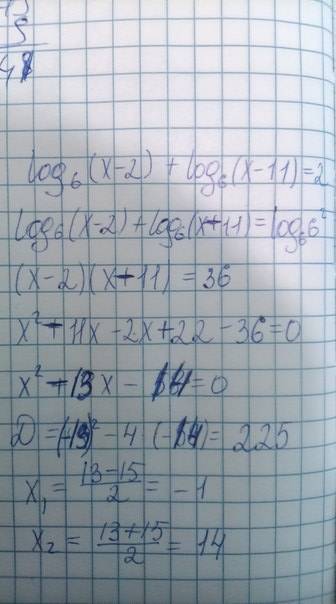 log₆(x-2) + log₆(x-11)=2
log₆(x-2)+log₆(x-11)=log₆6²
(x-2)(x-11)=36
x²-11x-2x+22-36=0
x²-13x-14=0
D=(-13)²-4(-14)=225
x₁= (13-15)/2 = -1
x₂= (13+15)/2 = 14